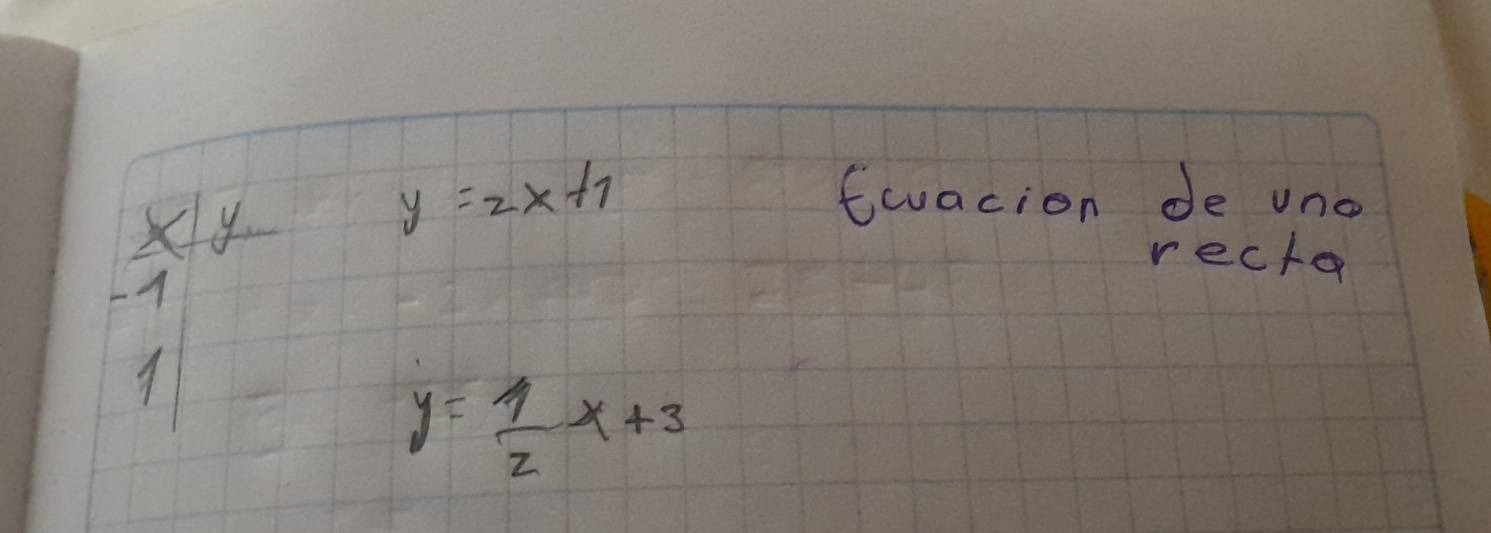 x | y    y = 2x+1    Ecuacion de una
recta
-1
1
y = 1/2 x + 3